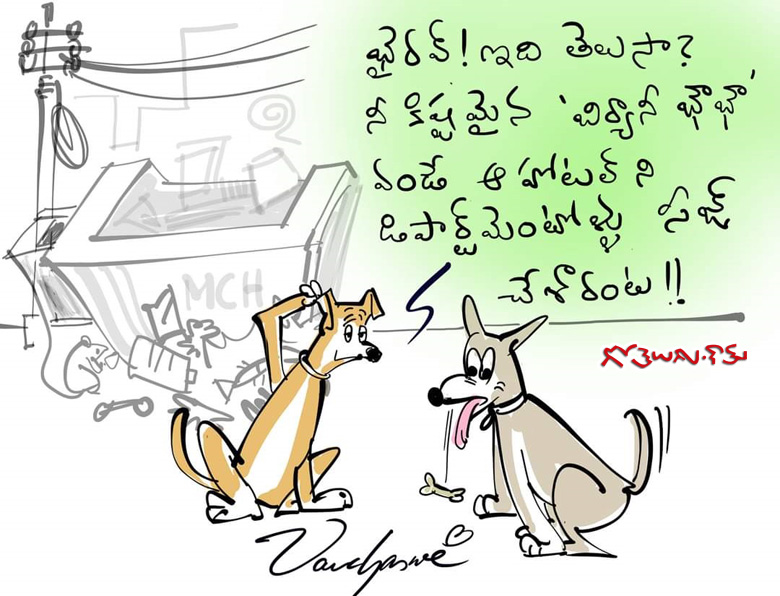 భైరవ్! ఇది తెలుసా?
నీ కిష్టమైన 'బిర్యానీ భౌభౌ'
వండే ఆ హోటల్ ని
డిపార్ట్‌మెంటోళ్ళు సీజ్
చేశారంటు!!
గోతెలుగు.కామ్
MCH